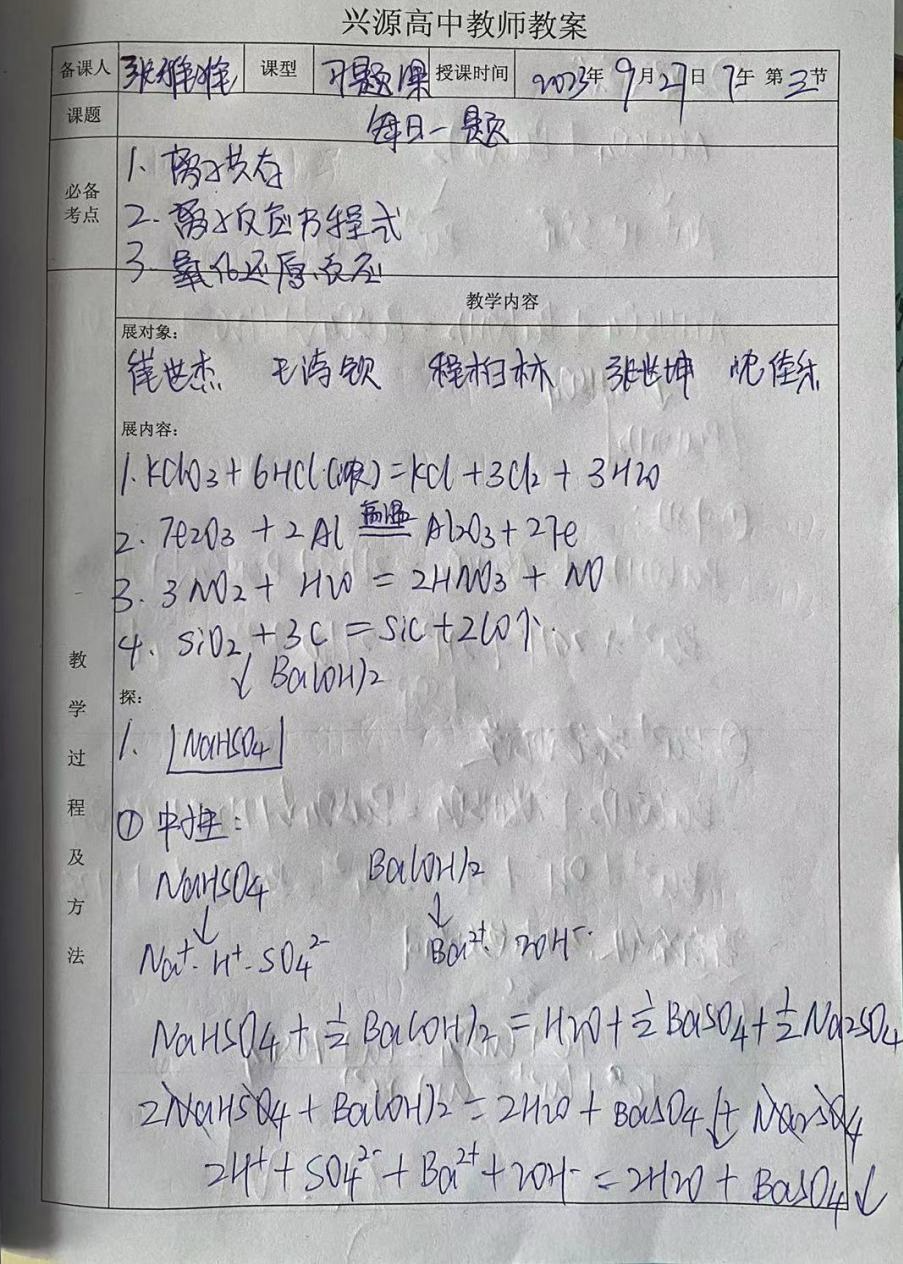 兴源高中教师教案
备课人 张雅雅 课型 习题课 授课时间 2023年9月27日 下午 第三节
课题 每日一题
必备考点
1. 离子共存
2. 离子反应方程式
3. 氧化还原反应
教学内容
展对象：
崔世杰 程柏林 张世坤 沈佳乐
展内容：
1. KClO3 + 6HCl(浓) = KCl + 3Cl2 + 3H2O
2. Fe2O3 + 2Al 高温 Al2O3 + 2Fe
3. 3NO2 + H2O = 2HNO3 + NO
4. SiO2 + 3C = SiC + 2CO↑
↓ Ba(OH)2
探：
1. NaHSO4
① 中性：
NaHSO4 Ba(OH)2
↓ ↓
Na+ H+ SO4²⁻ Ba²⁺ 2OH⁻
NaHSO4 + ½ Ba(OH)2 = H2O + ½ BaSO4 + ½ Na2SO4
2NaHSO4 + Ba(OH)2 = 2H2O + BaSO4↓ + Na2SO4
2H⁺ + SO4²⁻ + Ba²⁺ + 2OH⁻ = 2H2O + BaSO4↓
教学过程及方法